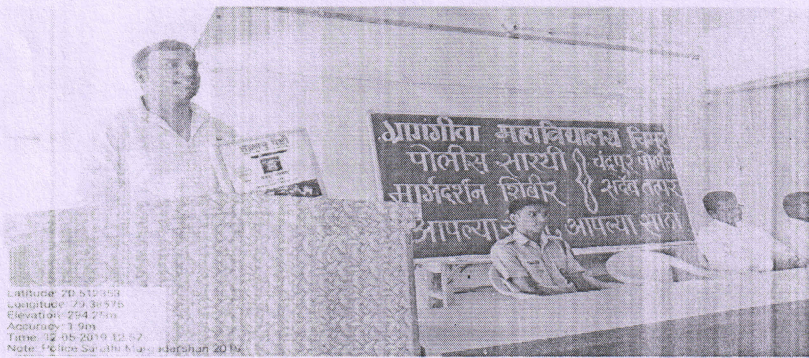 ग्रामगीता महाविद्यालय चिमूर
पोलीस सारथी चंद्रपूर पोलीस
मार्गदर्शन शिबीर सदैव तत्पर
आपल्या आपल्या साठी
Latitude: 20.512353
Longitude: 79.38575
Elevation: 294.21m
Accuracy: 1.9m
Time: 12-05-2019 12:57
Note: Police Sarathi Margadarshan 2019